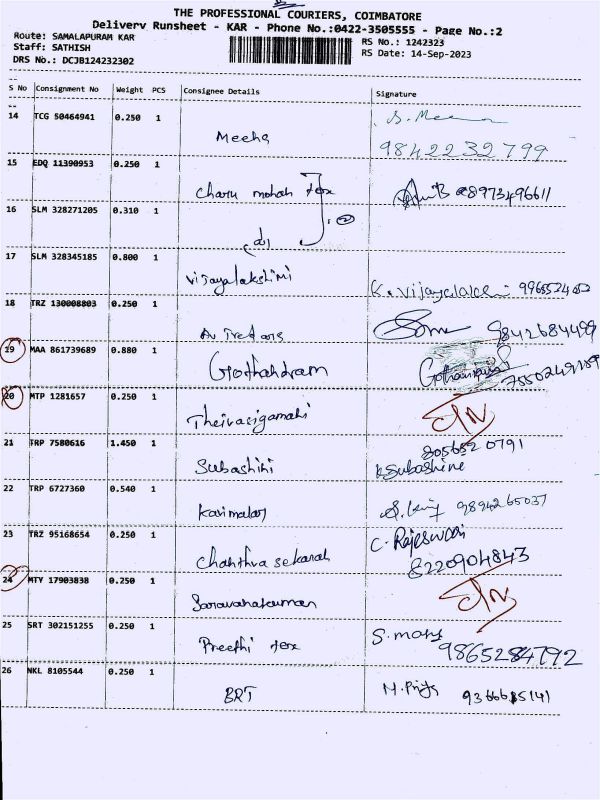 THE PROFESSIONAL COURIERS, COIMBATORE
Delivery Runsheet - KAR - Phone No.:0422-3505555 - Page No.:2
Route: SAMALAPURAM KAR
RS No.: 1242323
Staff: SATHISH
RS Date: 14-Sep-2023
DRS No.: DCJB124232302
S No Consignment No Weight PCS Consignee Details Signature
14 TCG 50464941 0.250 1 Meeha S. Meena
9842232799
15 EDQ 11390953 0.250 1 Charu mohan tex 8973496611
16 SLM 328271205 0.310 1 2
17 SLM 328345185 0.800 1 Vijayalakshimi K. Vijayalakshmi
18 TRZ 130008803 0.250 1 9842684499
19 MAA 861739689 0.880 1 Gothahdram
20 MTP 1281657 0.250 1 Theivasigamahi
21 TRP 7580616 1.450 1 Subashini 8056520791
K Subashine
22 TRP 6727360 0.540 1 Karimalar 9894265037
23 TRZ 95168654 0.250 1 Chahthra sekarah C. Rajeswari
8220904843
24 MTY 17903838 0.250 1 Saravahakumar
25 SRT 302151255 0.250 1 Preethi tex S. mohs
9865284792
26 NKL 8105544 0.250 1 BRT M. Priya